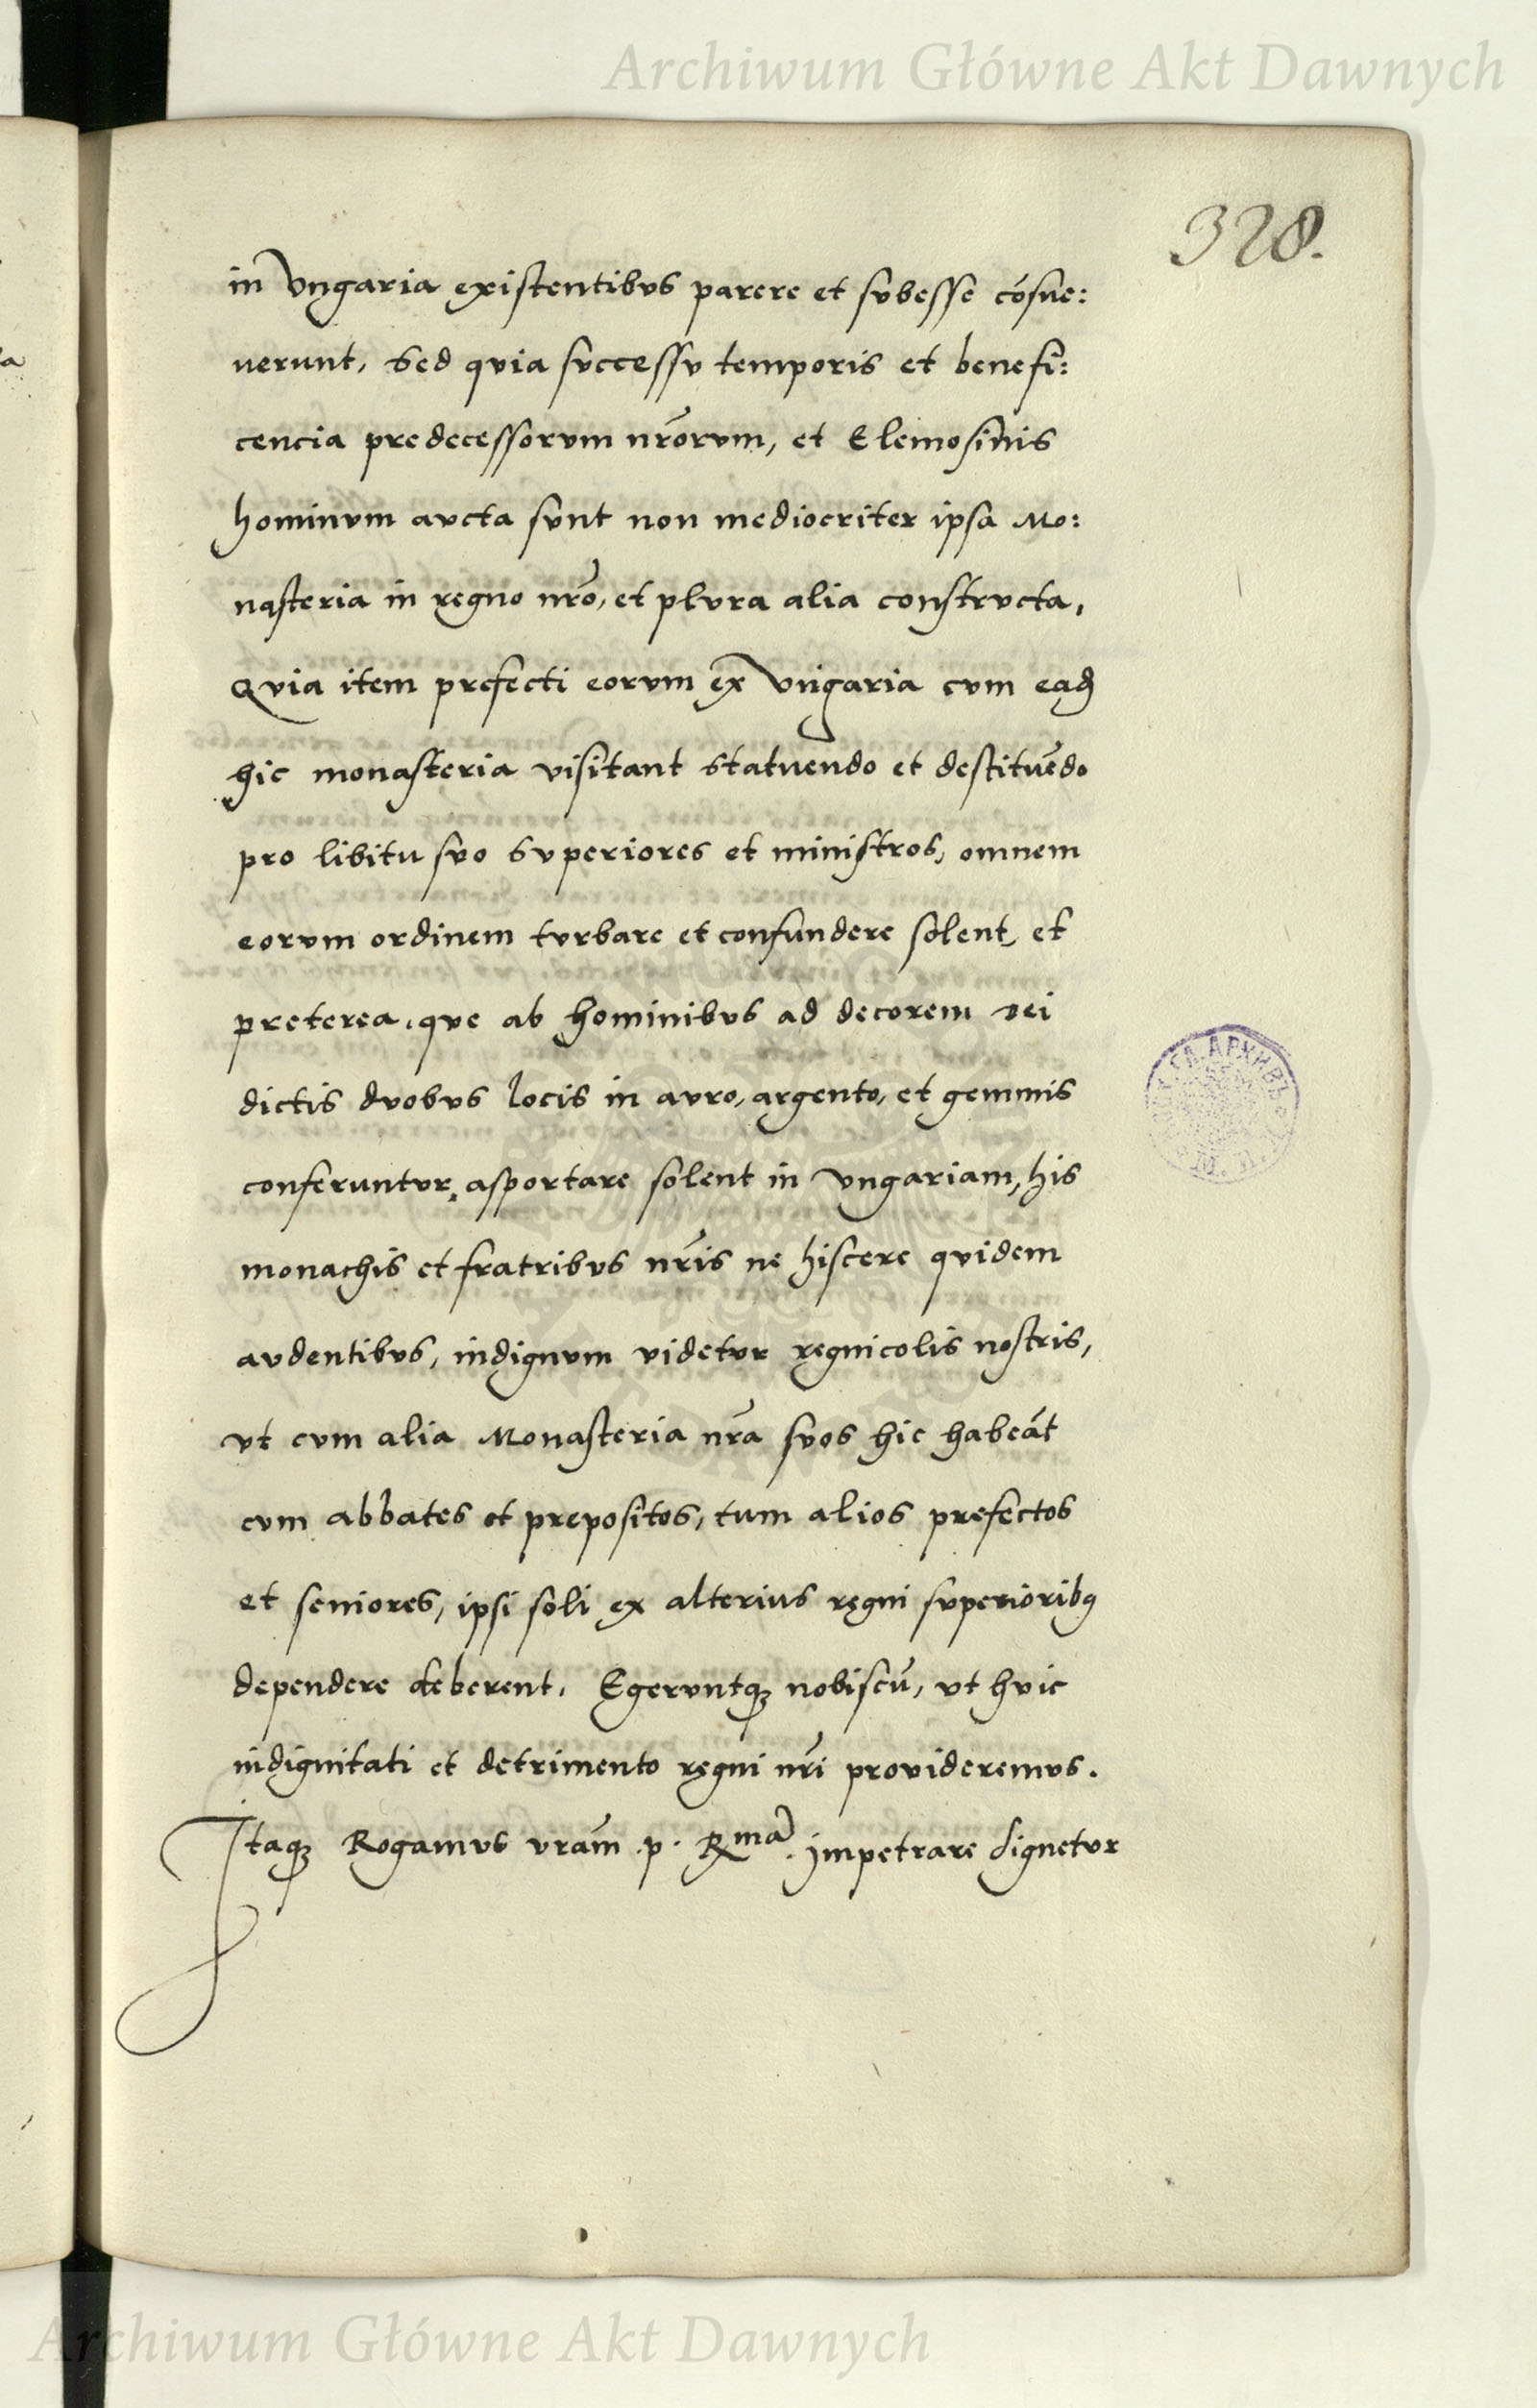 Archiwum Główne Akt Dawnych
328.
in Vngaria existentibvs parere et svbesse cōsue:
uerunt, Sed qvia svccessv temporis et benefi:
cencia predecessorvm nr̄orvm, et Elemosinis
hominvm avcta svnt non mediocriter ipsa Mo:
nasteria in regno nr̄o, et plvra alia constrvcta,
Qvia item prefecti eorvm ex Vngaria cvm eaꝺ
hic monasteria visitant statuendo et destituēdo
pro libitu svo Svperiores et ministros, omnem
eorvm ordinem tvrbare et confundere solent, et
preterea, qve ab hominibvs ad decorem Dei
dictis dvobvs locis in avro, argento, et gemmis
conferuntvr, asportare solent in Vngariam, his
monachis et fratribvs nr̄is ne hiscere qvidem
avdentibvs, indignvm videtvr regnicolis nostris,
vt cvm alia Monasteria nr̄a svos hic habeāt
cvm abbates et prepositos, tum alios prefectos
et seniores, ipsi soli ex alterius regni svperioribꝯ
dependere deberent. Egervntqꝫ nobiscū, vt hvic
indignitati et detrimento regni nr̄i provideremvs.
Itaqꝫ Rogamvs vram̄ .p. Rma. impetrare dignetvr
Archiwum Główne Akt Dawnych